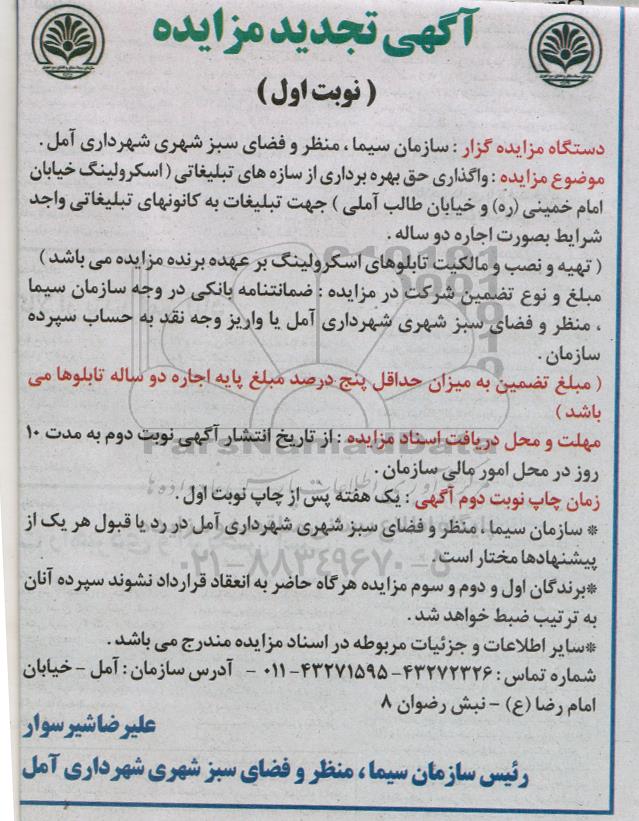 آگهی تجدید مزایده
( نوبت اول )
دستگاه مزایده گزار : سازمان سیما ، منظر و فضای سبز شهری شهرداری آمل .
موضوع مزایده : واگذاری حق بهره برداری از سازه های تبلیغاتی ( اسکرولینگ خیابان
امام خمینی (ره) و خیابان طالب آملی ) جهت تبلیغات به کانونهای تبلیغاتی واجد
شرایط بصورت اجاره دو ساله .
( تهیه و نصب و مالکیت تابلوهای اسکرولینگ بر عهده برنده مزایده می باشد )
مبلغ و نوع تضمین شرکت در مزایده : ضمانتنامه بانکی در وجه سازمان سیما
، منظر و فضای سبز شهری شهرداری آمل یا واریز وجه نقد به حساب سپرده
سازمان .
( مبلغ تضمین به میزان حداقل پنج درصد مبلغ پایه اجاره دو ساله تابلوها می
باشد )
مهلت و محل دریافت اسناد مزایده : از تاریخ انتشار آگهی نوبت دوم به مدت ۱۰
روز در محل امور مالی سازمان .
زمان چاپ نوبت دوم آگهی : یک هفته پس از چاپ نوبت اول .
* سازمان سیما ، منظر و فضای سبز شهری شهرداری آمل در رد یا قبول هر یک از
پیشنهادها مختار است.
*برندگان اول و دوم و سوم مزایده هرگاه حاضر به انعقاد قرارداد نشوند سپرده آنان
به ترتیب ضبط خواهد شد .
*سایر اطلاعات و جزئیات مربوطه در اسناد مزایده مندرج می باشد .
شماره تماس : ۴۳۲۷۲۳۲۶- ۴۳۲۷۱۵۹۵-۰۱۱ - آدرس سازمان : آمل - خیابان
امام رضا (ع) - نبش رضوان ۸
علیرضا شیرسوار
رئیس سازمان سیما ، منظر و فضای سبز شهری شهرداری آمل
ParsNamadData
۰۲۱-۸۸۳۴۹۶۷۰-۵